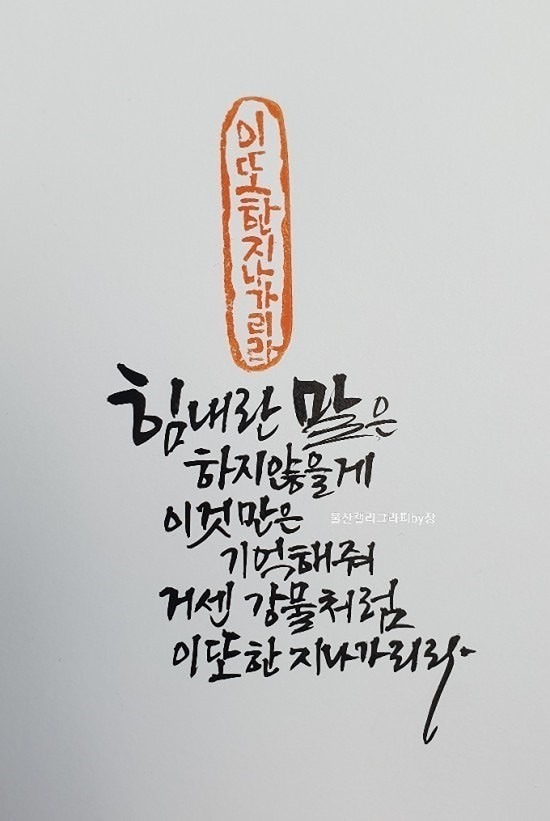 이또한지나가리라
힘내란 말은
하지않을게
이것만은
울산캘리그라피by장
기억해줘
거센 강물처럼
이또한 지나가리라.